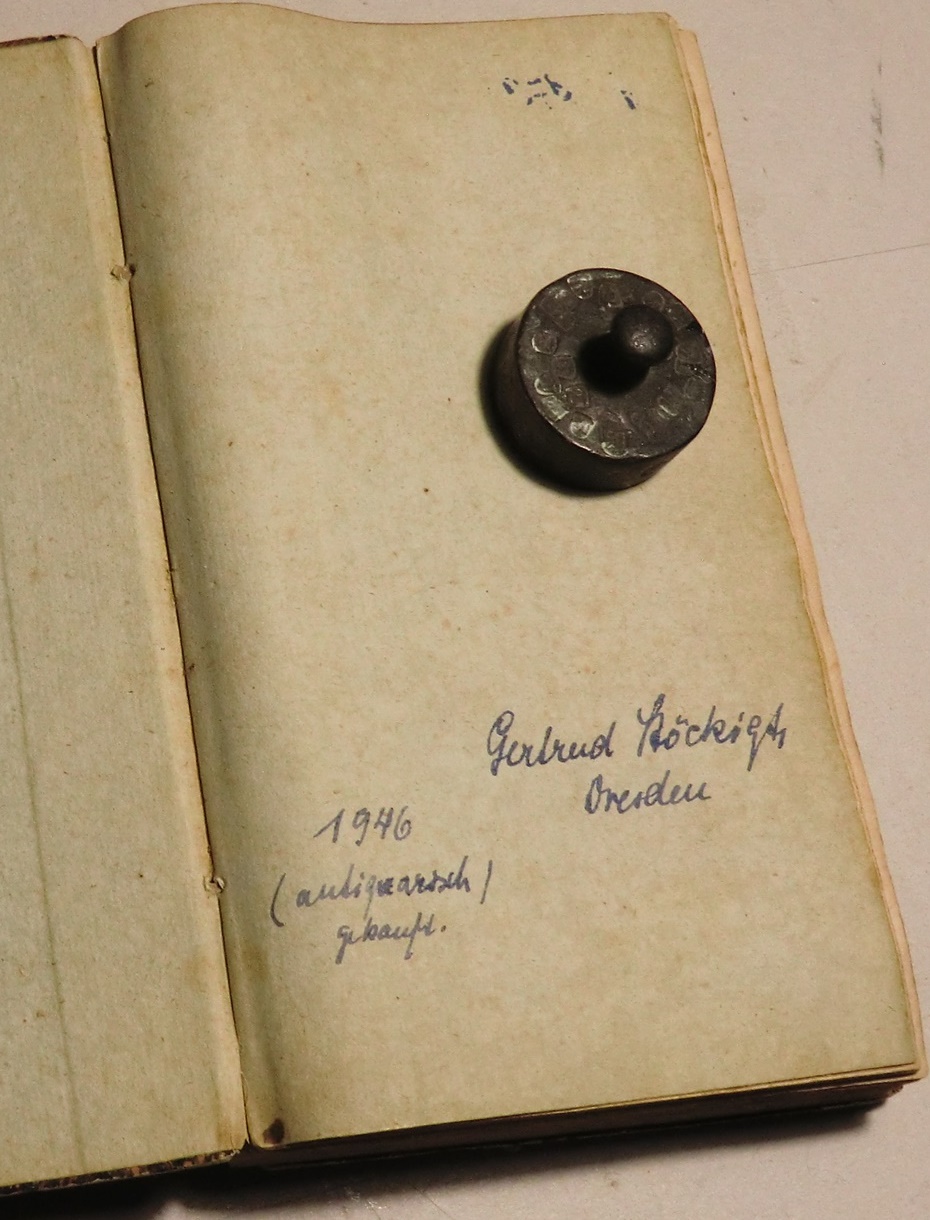 Gertrud Stöckigt,
Dresden
1946
(antiquarisch)
gekauft.